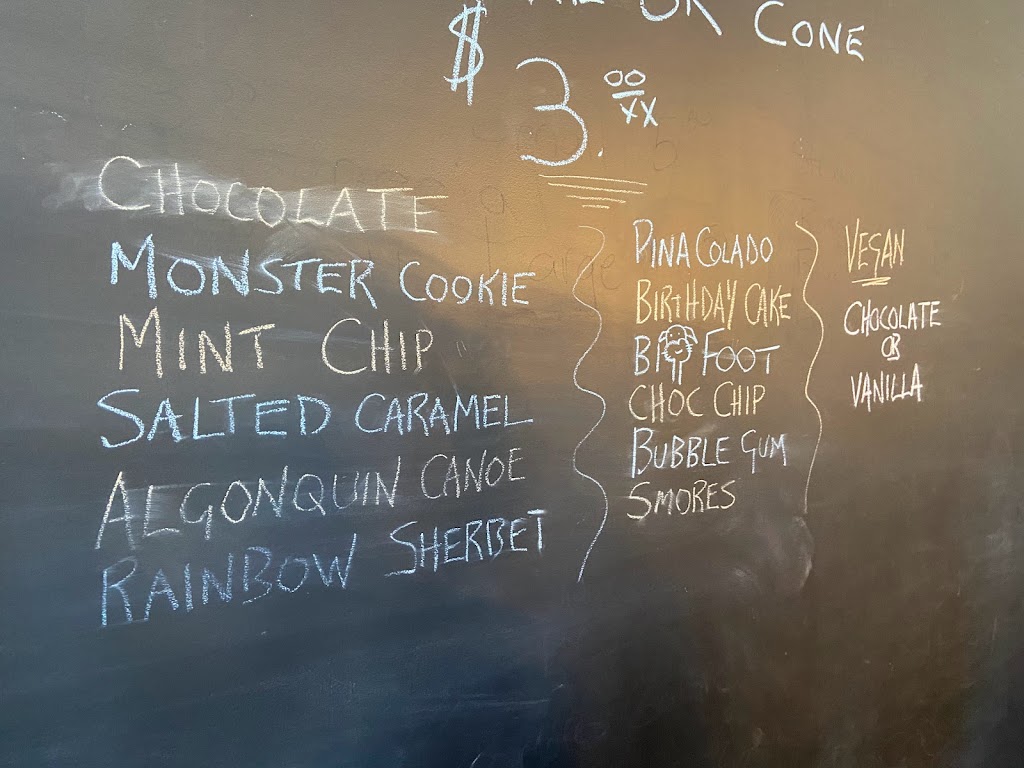 OR CONE
$ 3.00/xx
CHOCOLATE
MONSTER COOKIE
MINT CHIP
SALTED CARAMEL
ALGONQUIN CANOE
RAINBOW SHERBET
PINA COLADO
BIRTHDAY CAKE
BIG FOOT
CHOC CHIP
BUBBLE GUM
SMORES
VEGAN
CHOCOLATE
OR
VANILLA